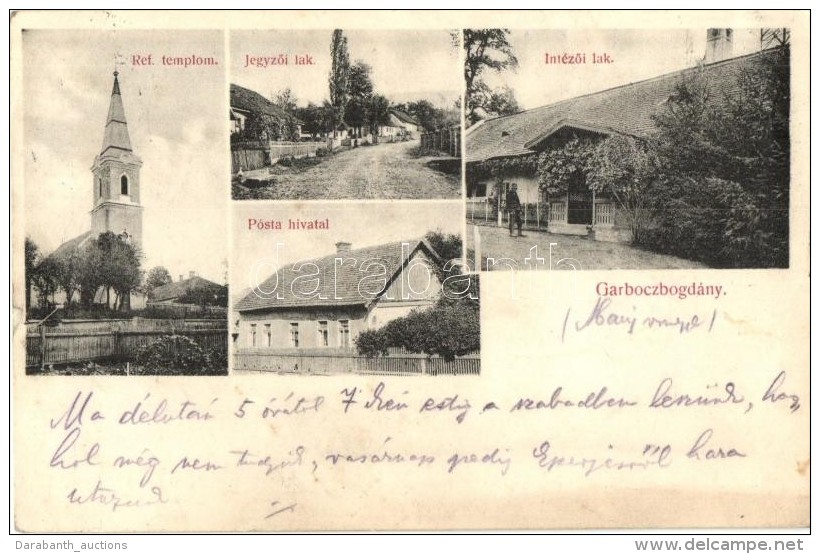 Ref. templom.
Jegyzői lak.
Intézői lak.
Pósta hivatal
darabanth
Garboczbogdány.
Ma délután 5 órától 7 estig a szabadban leszünk, hogy
hol még nem tudjuk, vasárnap pedig Eperjesről haza
utazunk
Darabanth_auctions
http://www.delcampe.net